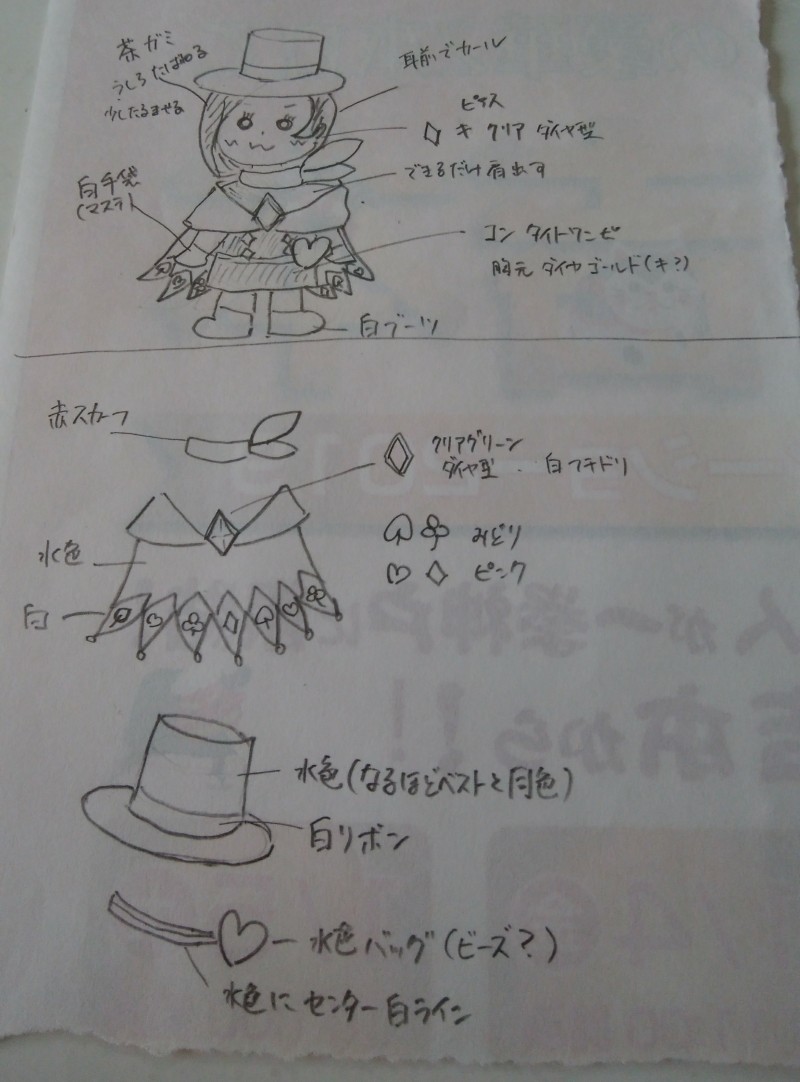 茶ガミ
うしろ たばねる
少したるませる
耳前でカール
ピアス
キ クリア ダイヤ型
できるだけ肩出す
白手袋
(マステ)
コン タイトワンピ
胸元 ダイヤ ゴールド(キ?)
白ブーツ
赤スカーフ
クリアグリーン
ダイヤ型 . 白フチドリ
水色
みどり
ピンク
白
水色(なるほどベストと同色)
白リボン
水色バッグ(ビーズ?)
水色にセンター白ライン